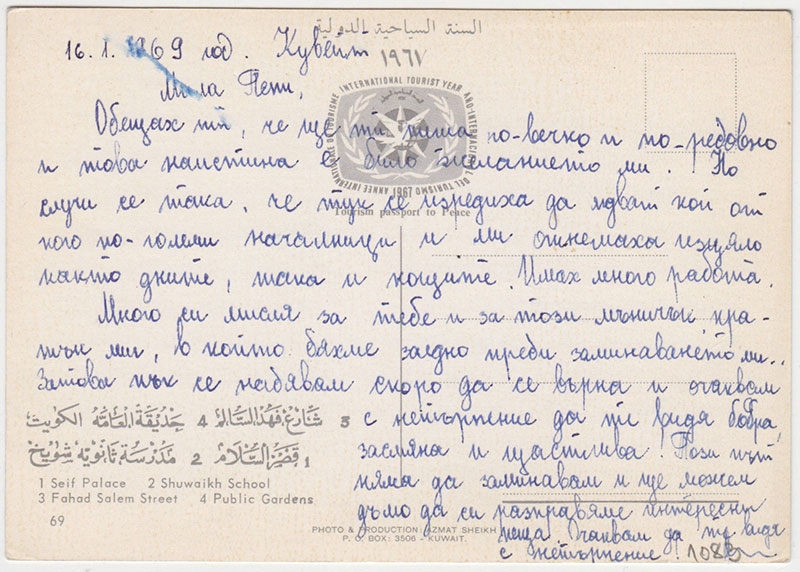 السنة السياحية الدولية
١٩٦٧
16.1.1969 год. Кувейт
INTERNATIONAL TOURIST YEAR
ANNÉE INTERNATIONALE DU TOURISME
AÑO INTERNACIONAL DEL TURISMO
1967
Tourism passport to Peace
Мила Пепи,
Обещах ти, че ще ти пиша по-вечко и по-редовно
и това наистина е било желанието ми. Но
случи се така, че тук се изредиха да идват кой от
кого по-големи началници и ми отнемаха изцяло
както дните, така и нощите. Имах много работа.
Много си мисля за тебе и за този мъничък, кра-
тък миг, в който бяхме заедно преди заминаването ми..
Затова пък се надявам скоро да се върна и очаквам
с нетърпение да те видя бодра,
засмяна и щастлива! Този път
няма да заминавам и ще можем
дъмо да си разправяме интересни
неща. Очаквам да те видя
с нетърпение!
1083
3 شارع فهد السالم 4 حديقة العامه الكويت
1 قصر السلام 2 مدرسة ثانويه شويخ
1 Seif Palace 2 Shuwaikh School
3 Fahad Salem Street 4 Public Gardens
69
PHOTO & PRODUCTION: AZMAT SHEIKH
P. O. BOX: 3506 - KUWAIT.